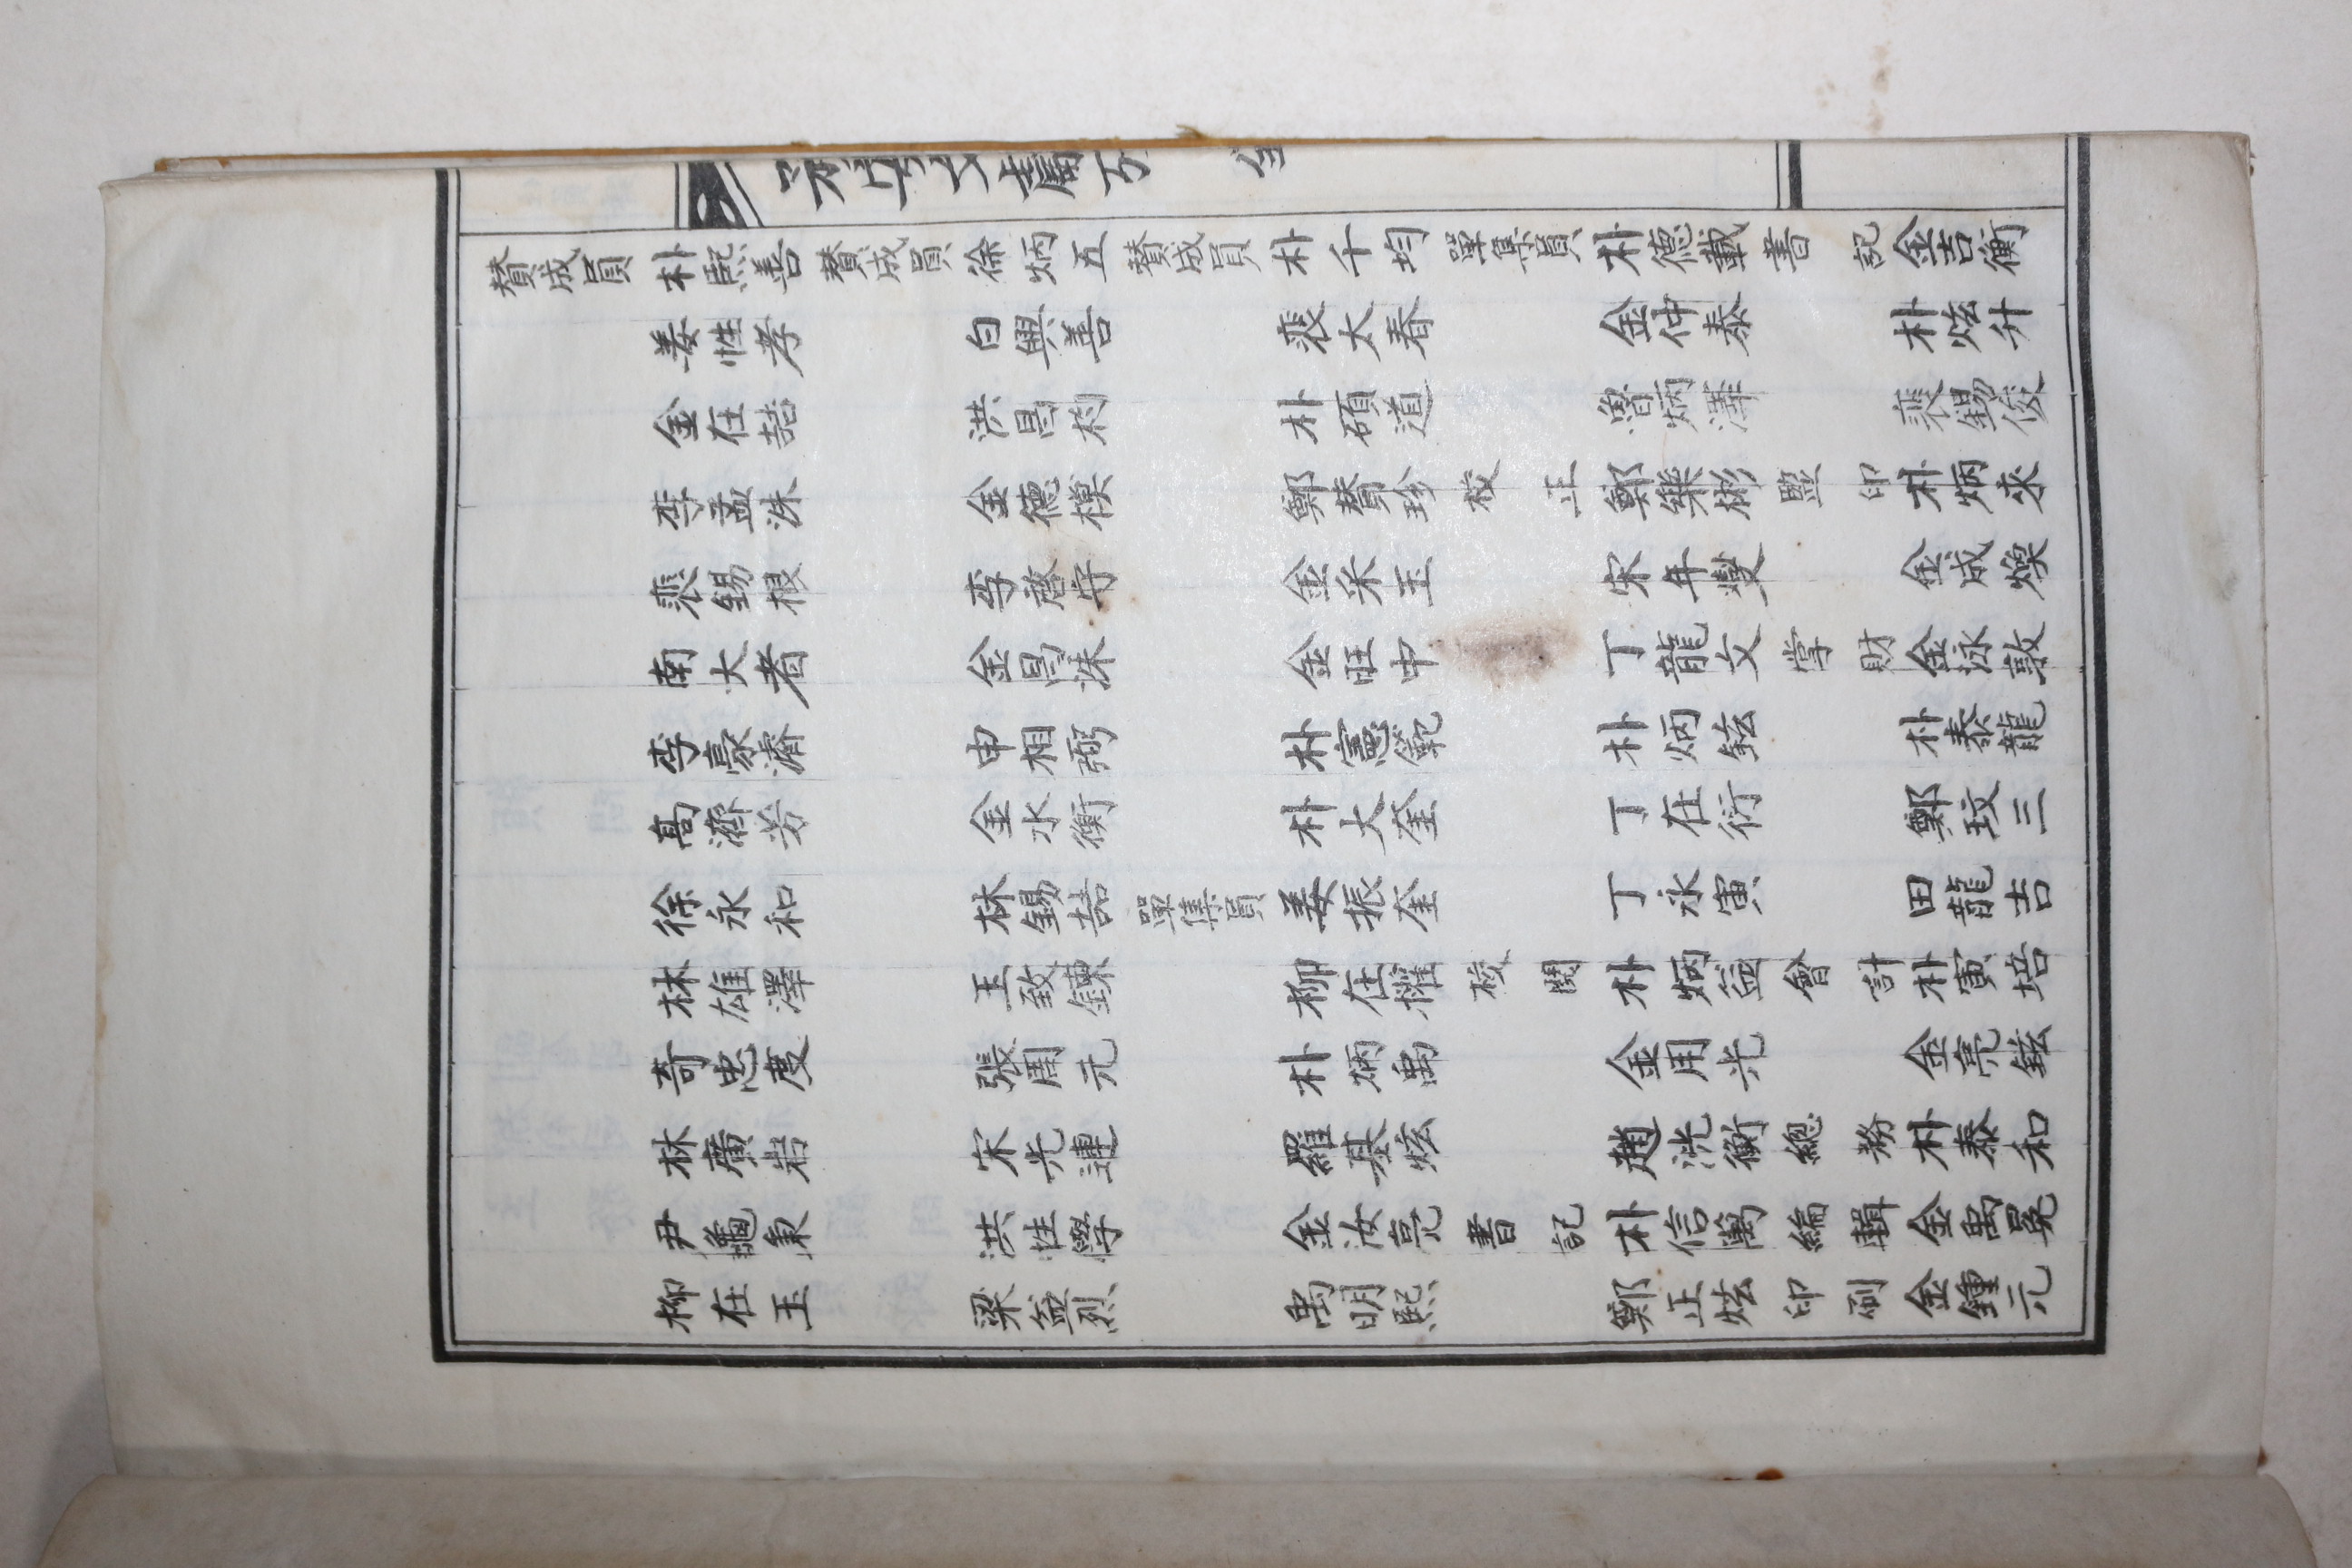 賛成員 朴熙善 賛成員 徐炳五 賛成員 朴千均 單集員 朴德載 書記 金吉衡
姜性孝 白興善 裵太春 金仲泰 朴炫升
金在喆 洪昌杓 朴碩道 魯炳澤 裵錫俊
李孟洙 金德模 鄭賛珍 校正 鄭樂彬 監印 朴炳來
裵錫根 李啓守 金采玉 宋年燮 金成煥
南大耉 金昌洙 金旺中 丁龍文 掌財 金泳敦
李豪濬 申相弼 朴憲範 朴炳鉉 朴泰龍
高濟芳 金水衡 朴大奎 丁在衍 鄭玟三
徐永和 林錫喆 單集員 姜振奎 丁永寅 田龍吉
林雄澤 王致鍊 柳在櫂 校閱 朴炳益 會計 朴寅培
奇忠度 張周元 朴炳禹 金用光 金亮鉉
林廣岩 宋光連 羅基炫 趙洸衡 總務 朴泰和
尹龜秉 洪性學 金汝亮 書記 朴信萬 編輯 金禹冕
柳在玉 梁益烈 禹明熙 鄭正炫 印刷 金鍾元